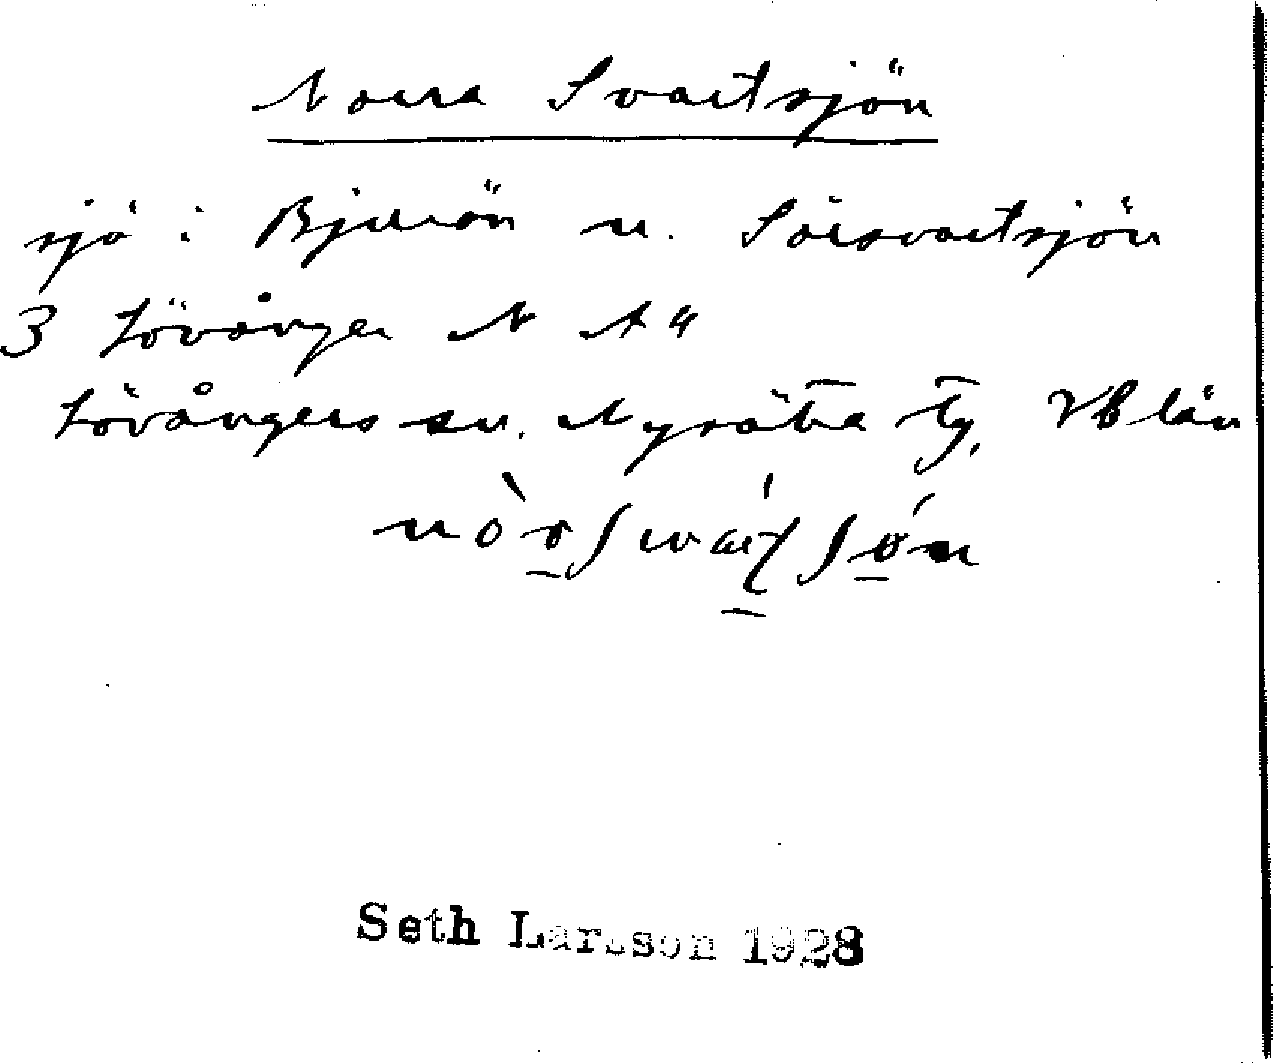 Norra Svartsjön
sjö i Bjurön n. Sörsvartsjön
3 Lövånger N A 4
Lövångers sn. Nysätra tg, Vb län
Seth Larsson 1928